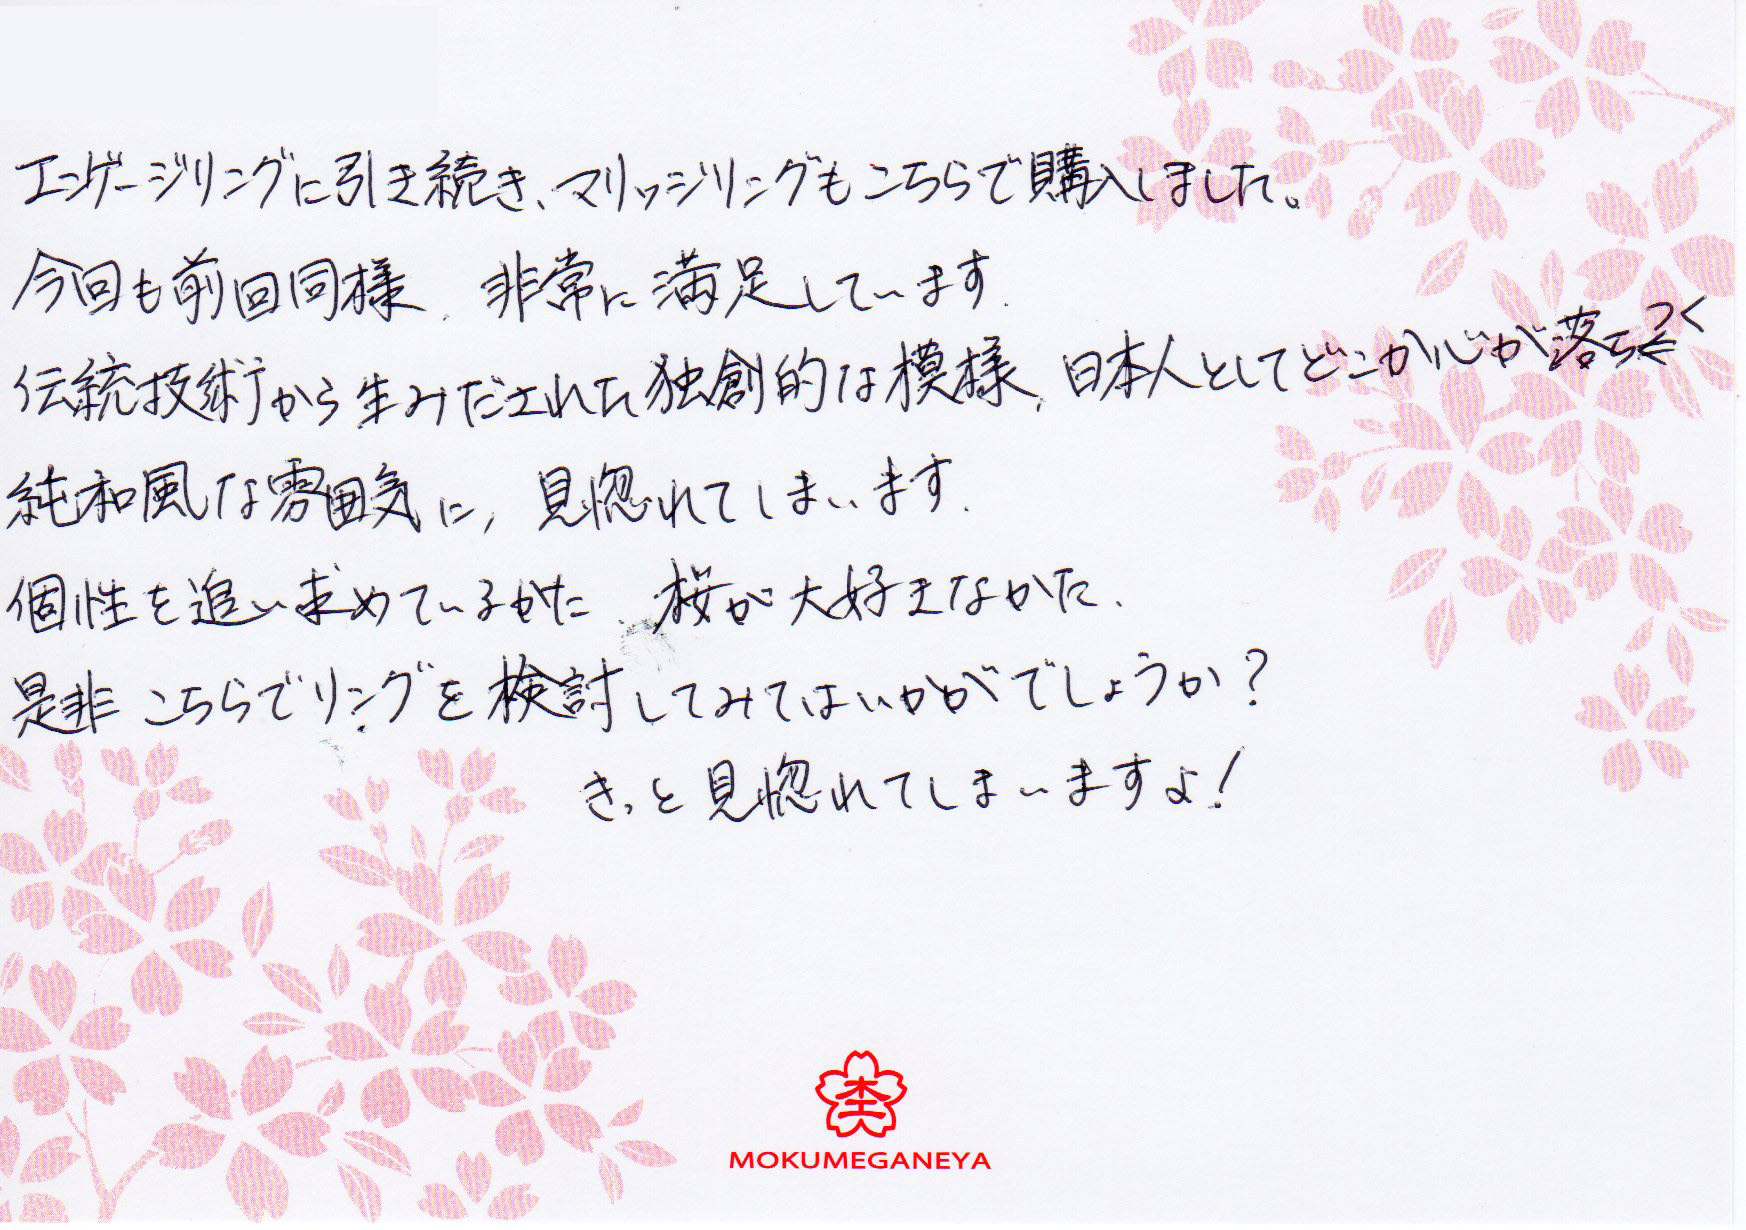 エンゲージリングに引き続き、マリッジリングもこちらで購入しました。
今回も前回同様、非常に満足しています.
伝統技術から生みだされた独創的な模様、日本人としてどこか心が落ちつく
純和風な雰囲気に、見惚れてしまいます.
個性を追い求めているかた、桜が大好きなかた、
是非こちらでリングを検討してみてはいかがでしょうか？
きっと見惚れてしまいますよ！
杢
MOKUMEGANEYA